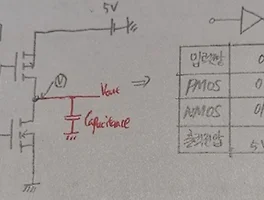 5V
V
Vout
Capacitance
입력전압 0
PMOS 0
NMOS 0/
출력전압 5V